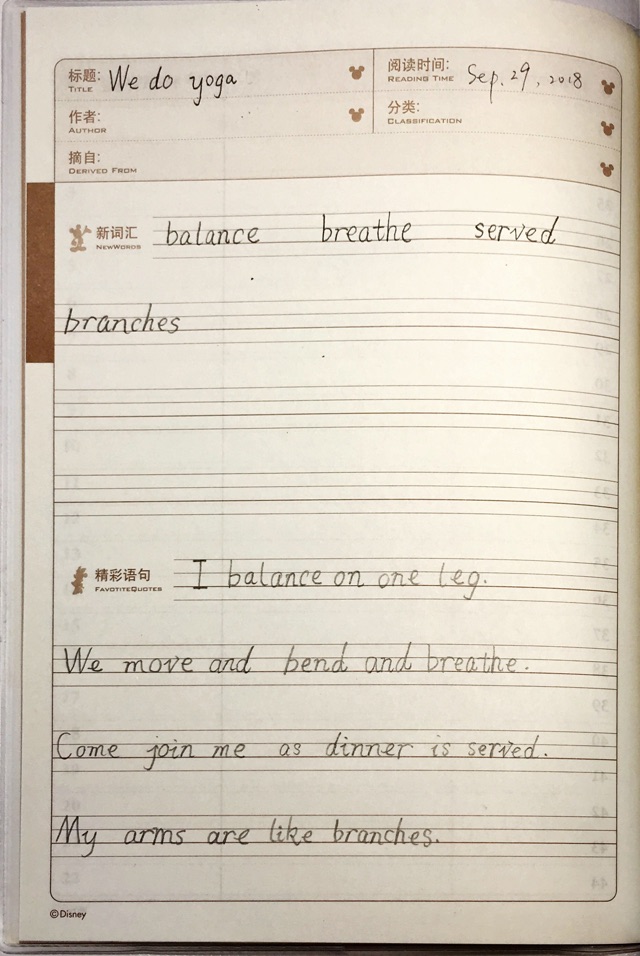 标题: We do yoga
TITLE
阅读时间: Sep. 29, 2018
READING TIME
作者:
AUTHOR
分类:
CLASSIFICATION
摘自:
DERIVED FROM
新词汇 balance breathe served
NEWWORDS
branches
精彩语句 I balance on one leg.
FAVOTITEQUOTES
We move and bend and breathe.
Come join me as dinner is served.
My arms are like branches.
©Disney